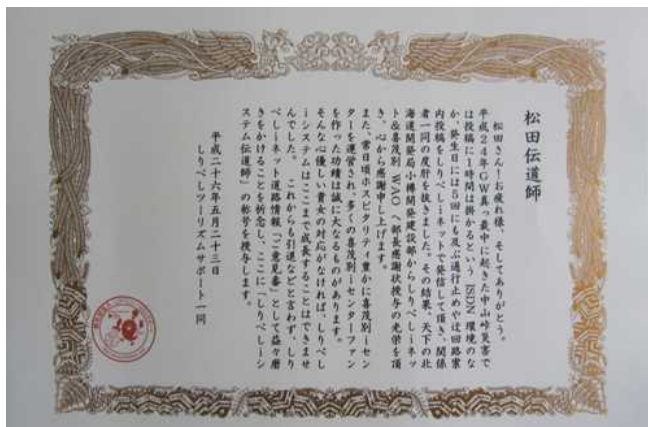 松田伝道師
松田さん！お疲れ様、そしてありがとう。
平成24年GW真っ最中に起きた中山峠災害で
は投稿に1時間は掛かるという ISDN 環境のな
か、発生日には5回にも及ぶ通行止めや迂回路案
内投稿をしりべしiネットで発信して頂き、関係
者一同の度肝を抜きました。その結果、天下の北
海道開発局小樽開発建設部からしりべしiネッ
ト＆喜茂別 WAO へ部長感謝状授与の光栄を頂
き、心から感謝申し上げます。
また、常日頃ホスピタリティ豊かに喜茂別iセン
ターを運営され、多くの喜茂別iセンターファン
を作った功績は誠に大なるものがあります。
そんな心優しい貴女の対応がなければ、しりべし
iシステムはここまで成長することはできませ
んでした。これからも引退などと言わず、しり
べしiネット道路情報「ご意見番」として益々磨
きをかけることを祈念し、ここに「しりべしiシ
ステム伝道師」の称号を授与します。
平成二十六年五月二十三日
しりべしツーリズムサポート一同